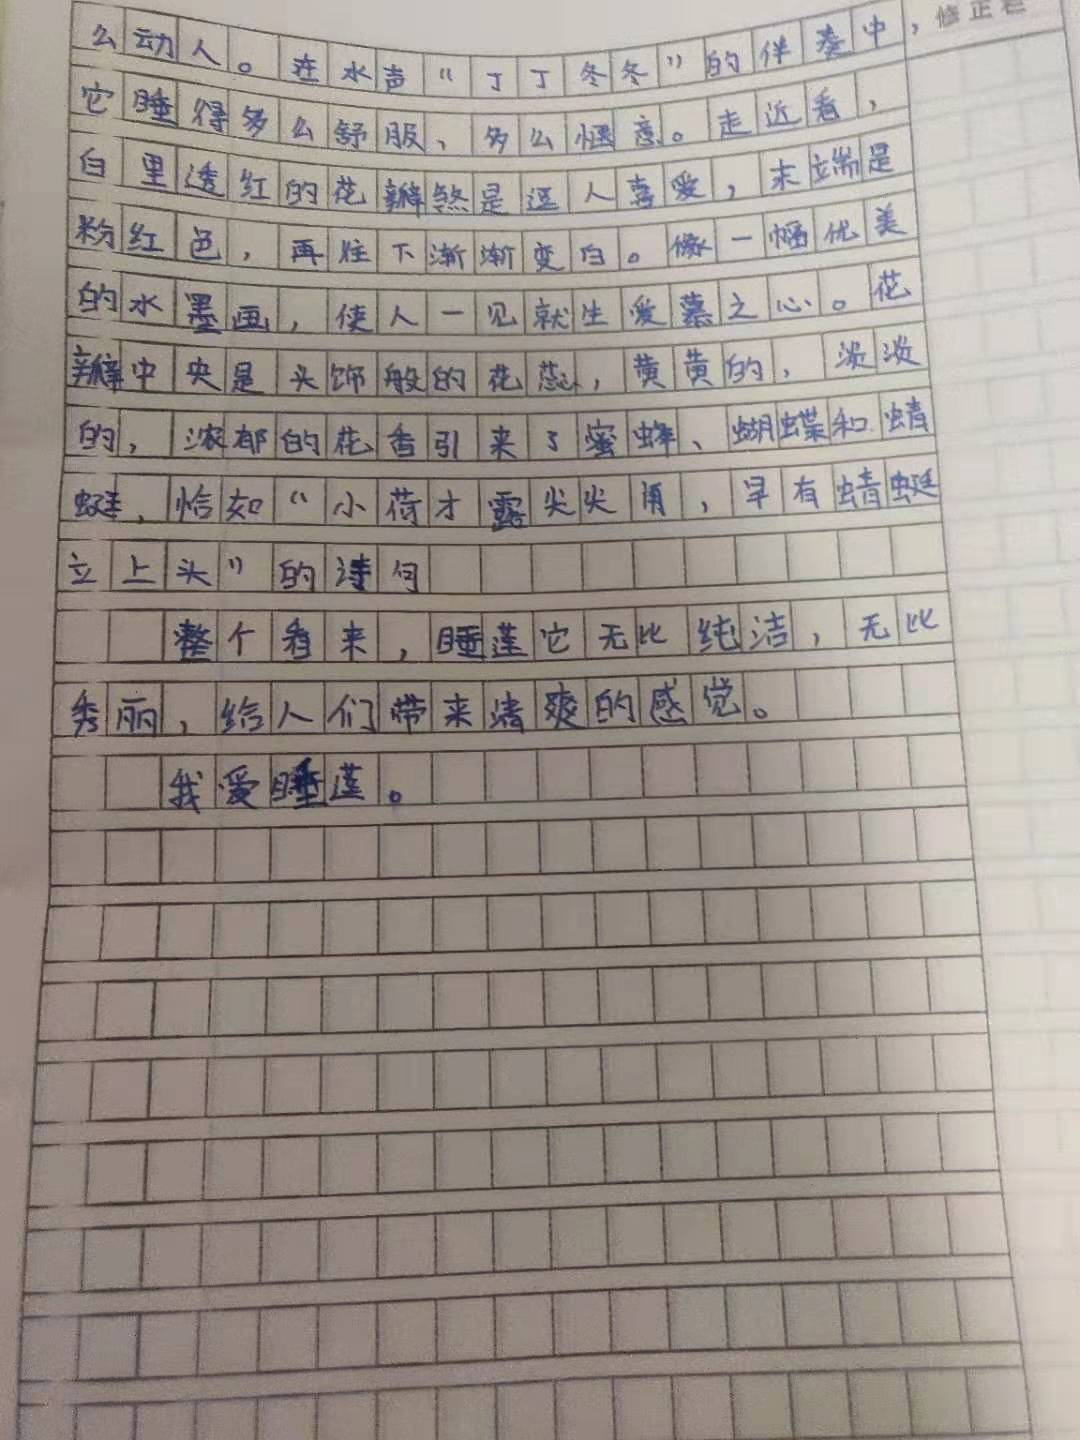 修正栏
么动人。在水声“丁丁冬冬”的伴奏中,
它睡得多么舒服、多么惬意。走近看,
白里透红的花瓣煞是逗人喜爱,末端是
粉红色,再往下渐渐变白。像一幅优美
的水墨画,使人一见就生爱慕之心。花
瓣中央是头饰般的花蕊,黄黄的,淡淡
的,浓郁的花香引来了蜜蜂、蝴蝶和蜻
蜓,恰如“小荷才露尖尖角,早有蜻蜓
立上头”的诗句
整个看来,睡莲它无比纯洁,无比
秀丽,给人们带来清爽的感觉。
我爱睡莲。